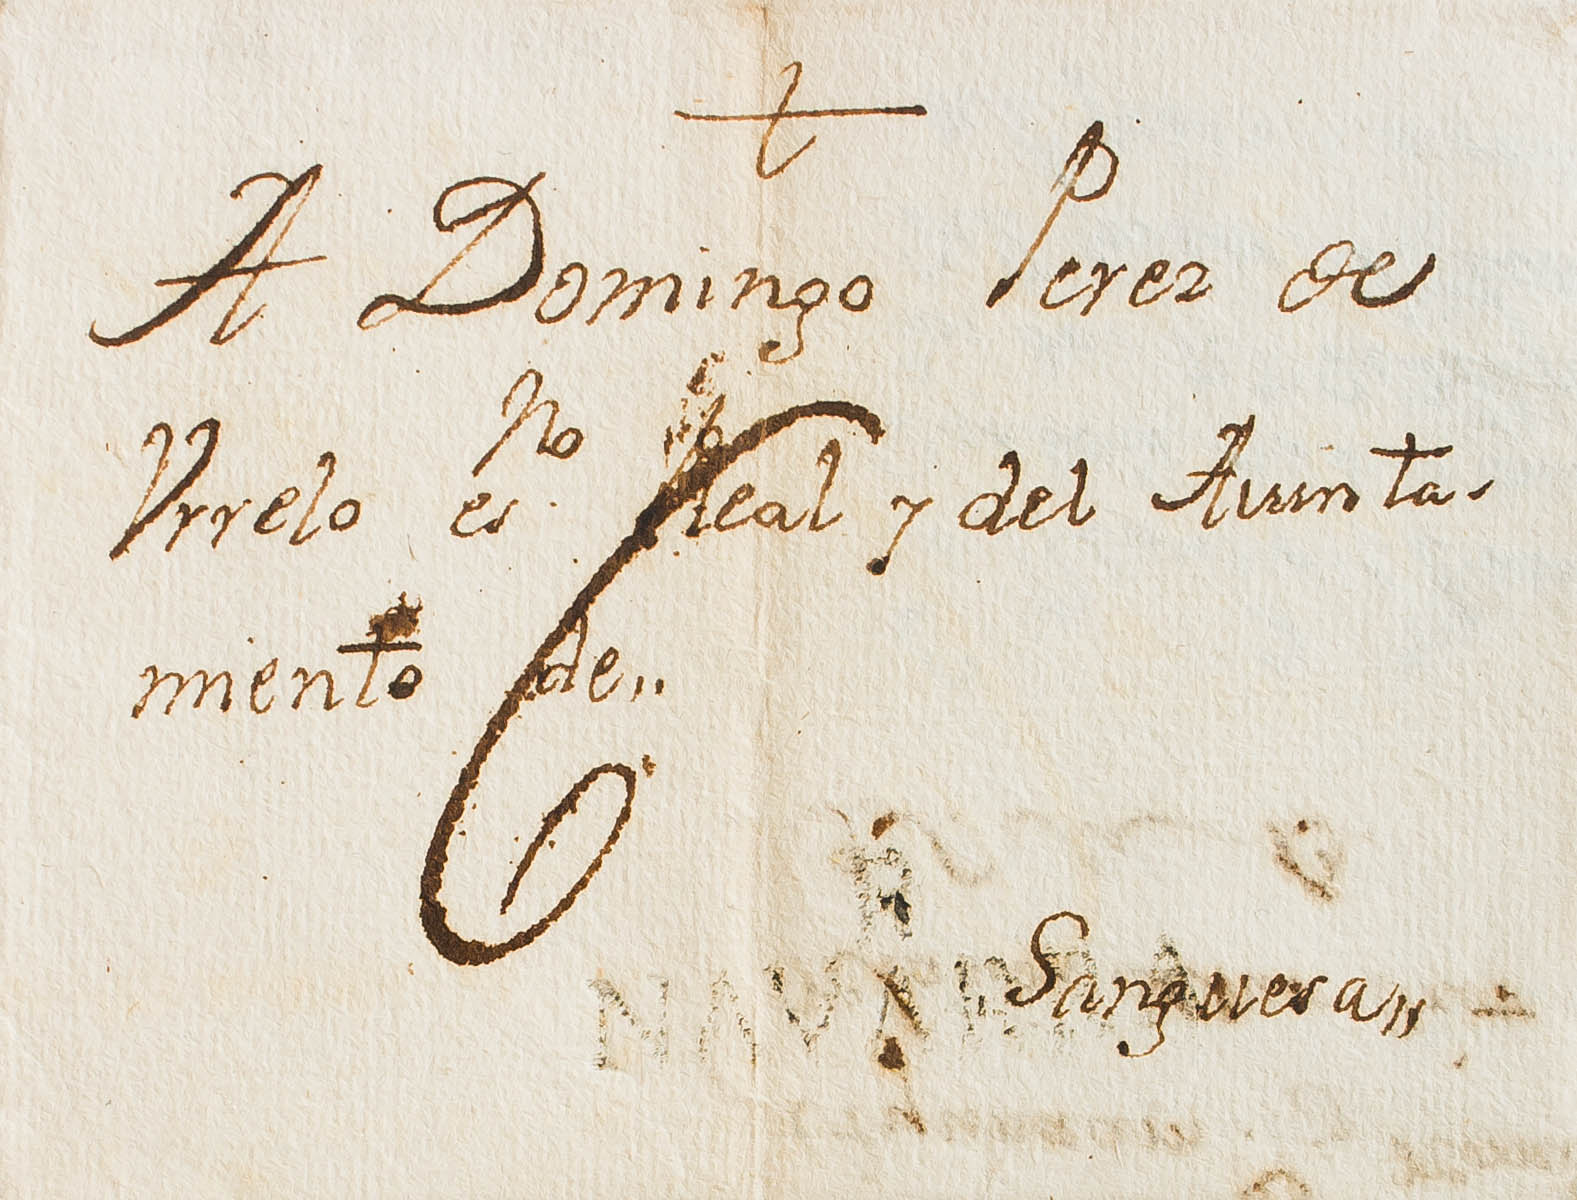 A Domingo Perez de
Vrrelo es no Real y del Aiunta
miento de,,
6
NAVARRA
Sanguesa,,